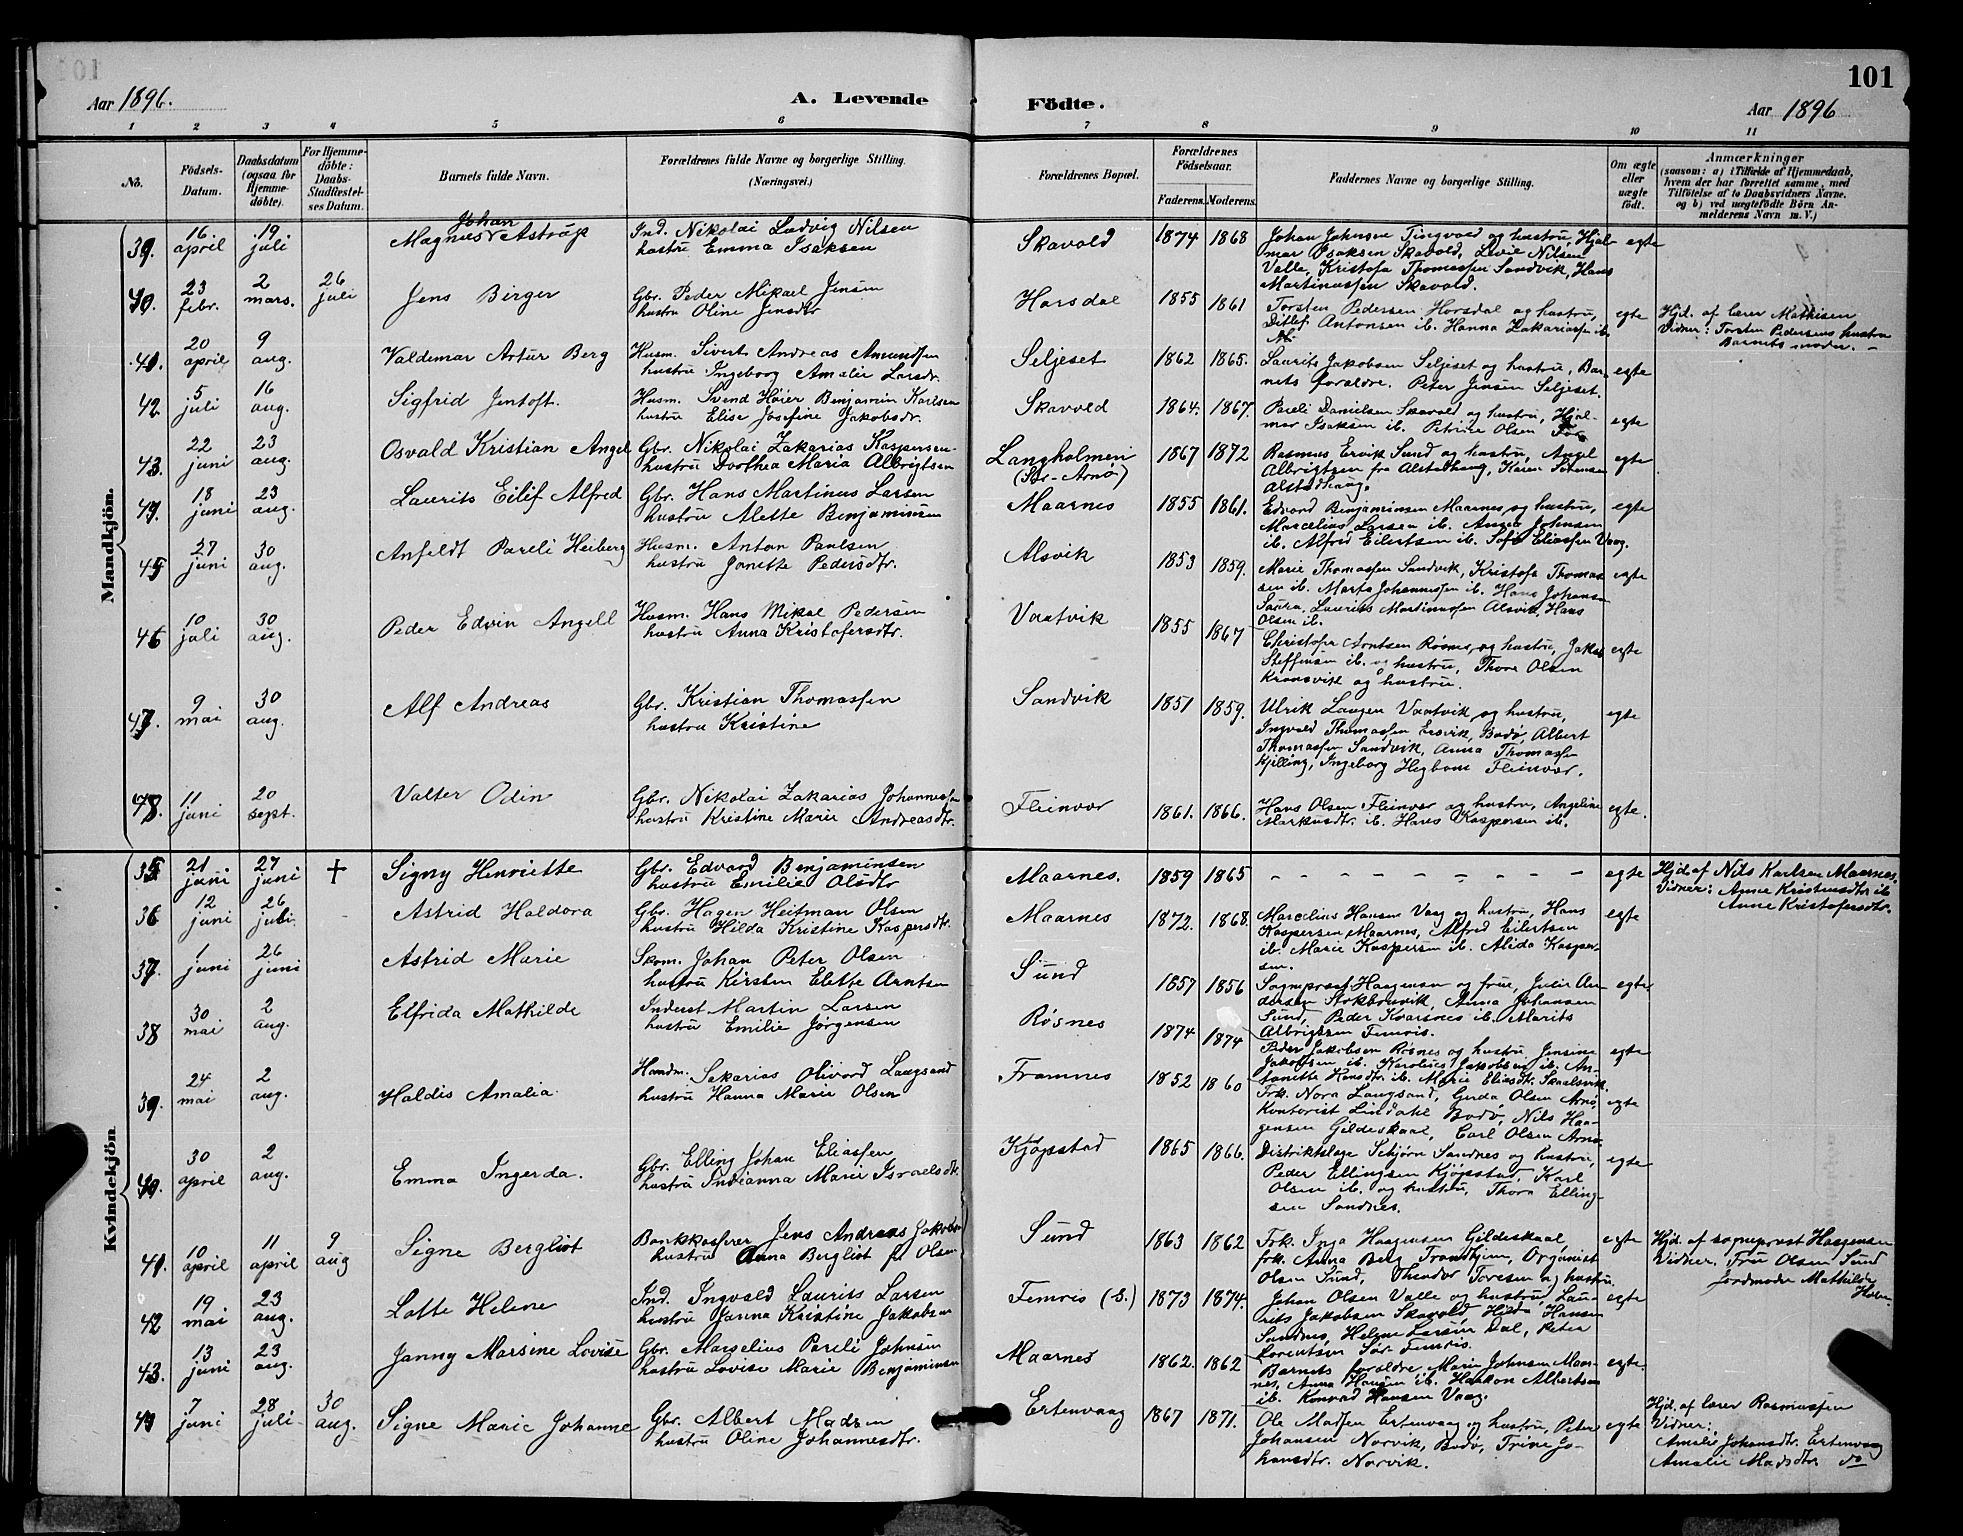 101
Aar 1896.
A. Levende Födte.
Aar 1896
1 2 3 4 5 6 7 8 9 10 11
No.
Födsels-Datum.
Daabsdatum (ogsaa for Hjemme-döbte).
For Hjemme-döbte: Daabs-Stadfæstelses Datum.
Barnets fulde Navn.
Forældrenes fulde Navne og borgerlige Stilling. (Næringsvei.)
Forældrenes Bopæl.
Forældrenes Födselsaar.
Faderens. Moderens.
Faddernes Navne og borgerlige Stilling.
Om ægte eller uægte födt.
Anmærkninger
(saasom: a) i Tilfælde af Hjemmedaab, hvem der har forrettet samme, med Tilföielse af to Daabsvidners Navne. og b) ved uægtefödte Börn Anmelderens Navn m. V.)
Mandkjön.
39. 16 april 19 juli Magnus Johan Astrup
Ind. Nikolai Ludvig Nilsen
hustru Emma Isaksen
Skavold 1874 1868
Johan Johnsen Tingvold og hustru, Hjal-
mar Isaksen Skavold, Livie Nilsen
Valle, Kristofa Thomassen Sandvik, Hans
Martinussen Skavold.
egte
40. 23 febr. 2 mars. 26 juli Jens Birger
Gbr. Peder Mikael Jensen
hustru Oline Jensdtr
Horsdal 1855 1861
Torsten Pedersen Horsdal og hustru,
Ditlef Antonsen ib. Hanna Zakariassen ib.
egte
Hjd. af lærer Mathisen
Vidner: Torsten Pedersens hustru
Barnets moder.
41. 20 april 9 aug. Valdemar Artur Berg
Husm. Sivert Andreas Amundsen
hustru Ingeborg Amalie Larsdr.
Seljeset 1862 1865.
Laurits Jakobsen Seljeset og hustru, Bar-
nets forældre. Peter Jensen Seljeset.
egte
42 5 juli 16 aug. Sigfrid Jentoft.
Husm. Svend Høier Benjamin Karlsen
hustru Elise Josefine Jakobsdr.
Skavold 1864. 1867.
Pareli Danielsen Skavold og hustru, Hjal-
mar Isaksen ib. Petrine Olsen
egte
43. 22 juni 23 aug. Osvald Kristian Angel
Gbr. Nikolai Zakarias Kaspersen
hustru Dorthea Maria Albrigtsen
Langholmen (Sør-Arnø) 1867 1872
Rasmus Ervik Sund og hustru, Angel
Albrigtsen fra Alstahaug, Karen Sørensen
Alstadhaug.
egte
44. 18 juni 23 aug. Laurits Eilif Alfred
Gbr. Hans Martinus Larsen
hustru Alette Benjaminsen
Maarnes 1855 1861.
Edvard Benjaminsen Maarnes og hustru,
Marcelius Larsen ib. Anna Johnsen
ib. Alfred Eilertsen ib. Sofe Eliassen Vaag.
egte
45 27 juni 30 aug. Anfeldt Pareli Heiberg
Husm. Anton Paulsen
hustru Janette Pedersdtr.
Alsvik 1853 1859.
Marie Thomassen Sandvik, Kristofa Thomas-
sen ib. Marta Johannessen ib. Hans Johansen
Saura, Laurits Martinussen Alsvik, Hans
Olsen ib.
egte
46 10 juli 30 aug. Peder Edvin Angell
Husm. Hans Mikal Pedersen
hustru Anna Kristofersdtr.
Vaatvik 1855 1867
Christofer Arntsen Røsnes og hustru, Jakob
Steffensen ib. og hustru, Thore Olsen
Kransvik og hustru.
egte
47. 9 mai 30 aug. Alf Andreas
Gbr. Kristian Thomassen
hustru Kristine
Sandvik 1851 1859.
Ulrik Laugen Vaatvik og hustru,
Ingvald Thomassen Ersvik, Bodø, Albert
Thomassen Sandvik, Anna Thomassen
Kjelling, Ingeborg Hegbom Fleinvær.
egte
48. 11 juni 20 sept. Valter Odin
Gbr. Nikolai Zakarias Johannessen
hustru Kristine Marie Andreasdtr.
Fleinvær 1861. 1866.
Hans Olsen Fleinvær og hustru, Angeline
Markusdtr. ib. Hans Kaspersen ib.
egte.
Kvindekjön
35 21 juni 27 juni † Signy Henriette
Gbr. Edvard Benjaminsen
hustru Emilie Olsdtr
Maarnes. 1859 1865
- - - - - - - - -
egte
Hjd. af Nils Karlsen Maarnes.
Vidner: Anne Kristensdtr ib
Anne Kristofersdtr.
36 12 juni 26 juli. Astrid Haldora
Gbr. Hagen Heitman Olsen
hustru Hilda Kristine Kaspersdtr.
Maarnes 1872. 1868.
Marcelius Hansen Vaag og hustru, Hans
Kaspersen Maarnes, Alfred Eilertsen
ib. Marie Kaspersen ib. Alida Kasper-
sen.
egte
37. 1 juni 26 juni Astrid Marie
Skom. Johan Peter Olsen
hustru Kirsten Elette Arntsen
Sund 1857 1856
Sogneprest Haagensen og frue, Julie An-
dersen Stokbrunvik, Anna Johansen
Sund, Peder Kvarsnes ib. Marits
Albrigtsen Femris.
egte
38 30 mai 2 aug. Elfrida Mathilde
Inderst Martin Larsen
hustru Emilie Jørgensen
Røsnes 1874 1874
Peder Jakobsen Røsnes og hustru, Jensine
Jakobsen ib. Karolius Jakobsen ib. An-
tonette Hansdtr ib. Marie Eliasdtr. Skaalsvik.
egte
39. 24 mai 2 aug. Haldis Amalia
Handm. Sakarias Olivard Langsand
hustru Hanna Marie Olsen
Framnes 1852 1860
Frk. Nora Langsand, Gerda Olsen Arnø,
Kontorist Lindahl Bodø, Nils Haa-
gensen Gildeskaal, Carl Olsen Arnø.
egte
40. 30 april 2 aug. Emma Ingerda.
Gbr. Elling Johan Eliassen
hustru Indianna Marie Israelsdtr.
Kjøpstad 1865 1866.
Distriktslæge Schjørn Sandnes og hustru,
Peder Ellingsen Kjøpstad, Karl
Olsen ib. og hustru, Thora Elling-
sen Sandnes.
egte
41. 10 april 11 april 9 aug Signe Bergliot
Bankkasserer Jens Andreas Jakobsen
hustru Anna Bergliot f. Olsen
Sund 1863 1862
Frk. Inga Haagensen Gildeskaal
frk. Anna Berg Trondhjem, Organist
Olsen Sund, Theodor Toresen og hustru.
egte
Hjd. af sogneprest Haagensen
Vidner. Fru Olsen Sund
Jordmoder Mathilde
Holm.
42 19 mai 23 aug. Lotte Helene
Ind. Ingvald Laurits Larsen
hustru Janna Kristine Jakobsen
Femris (S.) 1873 1874.
Johan Olsen Valle og hustru, Lau-
rits Jakobsen Skavold, Hilda Hansen
Sandnes, Helene Larsen Dal, Peter
Lorentsen Sør Femris.
egte
43. 13 juni 23 aug. Janny Marsine Lovise
Gbr. Marselius Pareli Johnsen
hustru Lovise Marie Benjaminsen
Maarnes 1862. 1862
Barnets forældre, Marie Johnsen Maar-
nes, Anna Hansen ib. Haakon Albertsen
ib. Konrad Hansen Vaag.
egte.
44 7 juni 28 juli 30 aug. Signe Marie Johanne
Gbr. Albert Madsen
hustru Oline Johannesdtr.
Ertenvaag 1867 1871.
Ole Madsen Ertenvaag og hustru, Peter
Johansen Norvik, Bodø, Trine Jo-
hansdtr. Norvik.
egte
Hjd. af lærer Rasmussen
Vidner:
Amalie Johansdtr. Ertenvaag
Amalie Madsdtr. do